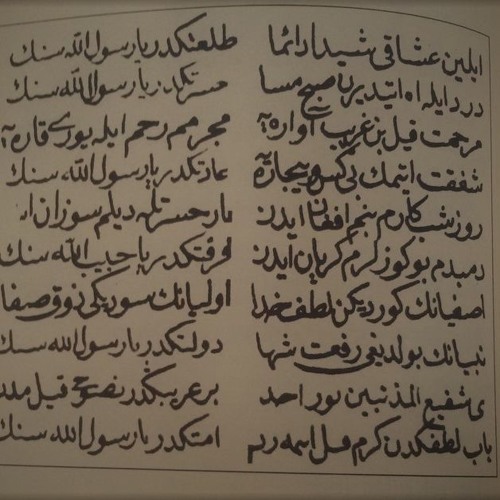 ایلین عشاقی شیدا دائما طلعتکدر یا رسول الله سنك
درد ایله اه ایتدیرن صبح مسا حسرتکدر یا رسول الله سنك
مرحمت قیل بن غریب آواره یه مجرمم رحم ایله یوزی قاره
شفقت ایتمك بی کس و بیچاره یه عادتکدر یا رسول الله سنك
روز شب کارم بنم افغان ایدن نار حسرتله دیلم سوزان
دمبدم بو کوزلرم کریان ایدن فرقتکدر یا حبیب الله سنك
اصفیانك کوردیکی لطف خدا اولیانك سوردیکی ذوق صفا
نبیانك بولدیغی رفعت شها دولتکدر یا رسول الله سنك
شفیع المذنبین نور احد بر غریبکدر نصوحی قیل مدد
باب لطفکدن کرم قیل ایمه رد امتکدر یا رسول الله سنك